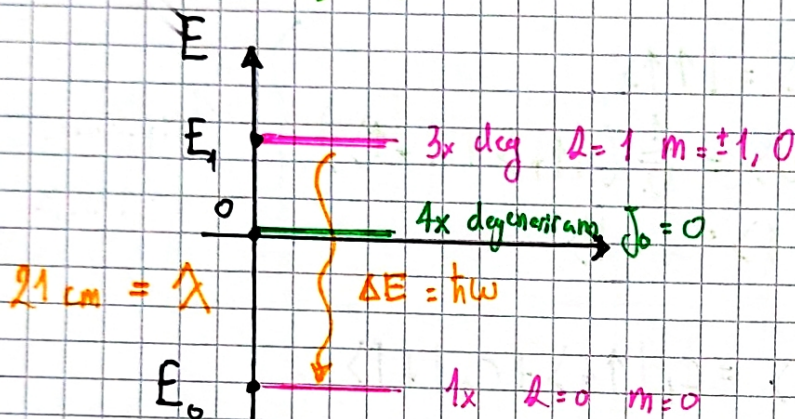 E
E₁ 3x deg s=1 m=±1, 0
0 4x degeneriran J₀ = 0
21 cm = λ ΔE = ħω
E₀ 1x s=0 m=0